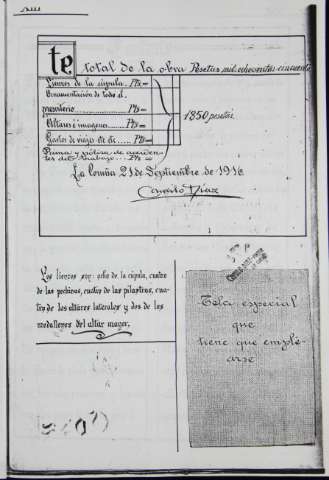 te total de la obra Pesetas mil ochocientas cincuenta
Lienzos de la cúpula. Pts=
Ornamentación de todo el
presbiterio Pts=
Altares é imagenes Pts=
Gastos de viaje etc etc Pts=
1850 pesetas
Prima y póliza de acciden-
tes del trabajo... Pts=
La Coruña 21 de Septiembre de 1916
Camilo Díaz
Los lienzos son: ocho de la cúpula, cuatro
de las pechinas, cuatro de las pilastras, cua-
tro de los altares laterales y dos de los
medallones del altar mayor,
Tela especial
que
tiene que emple-
arse